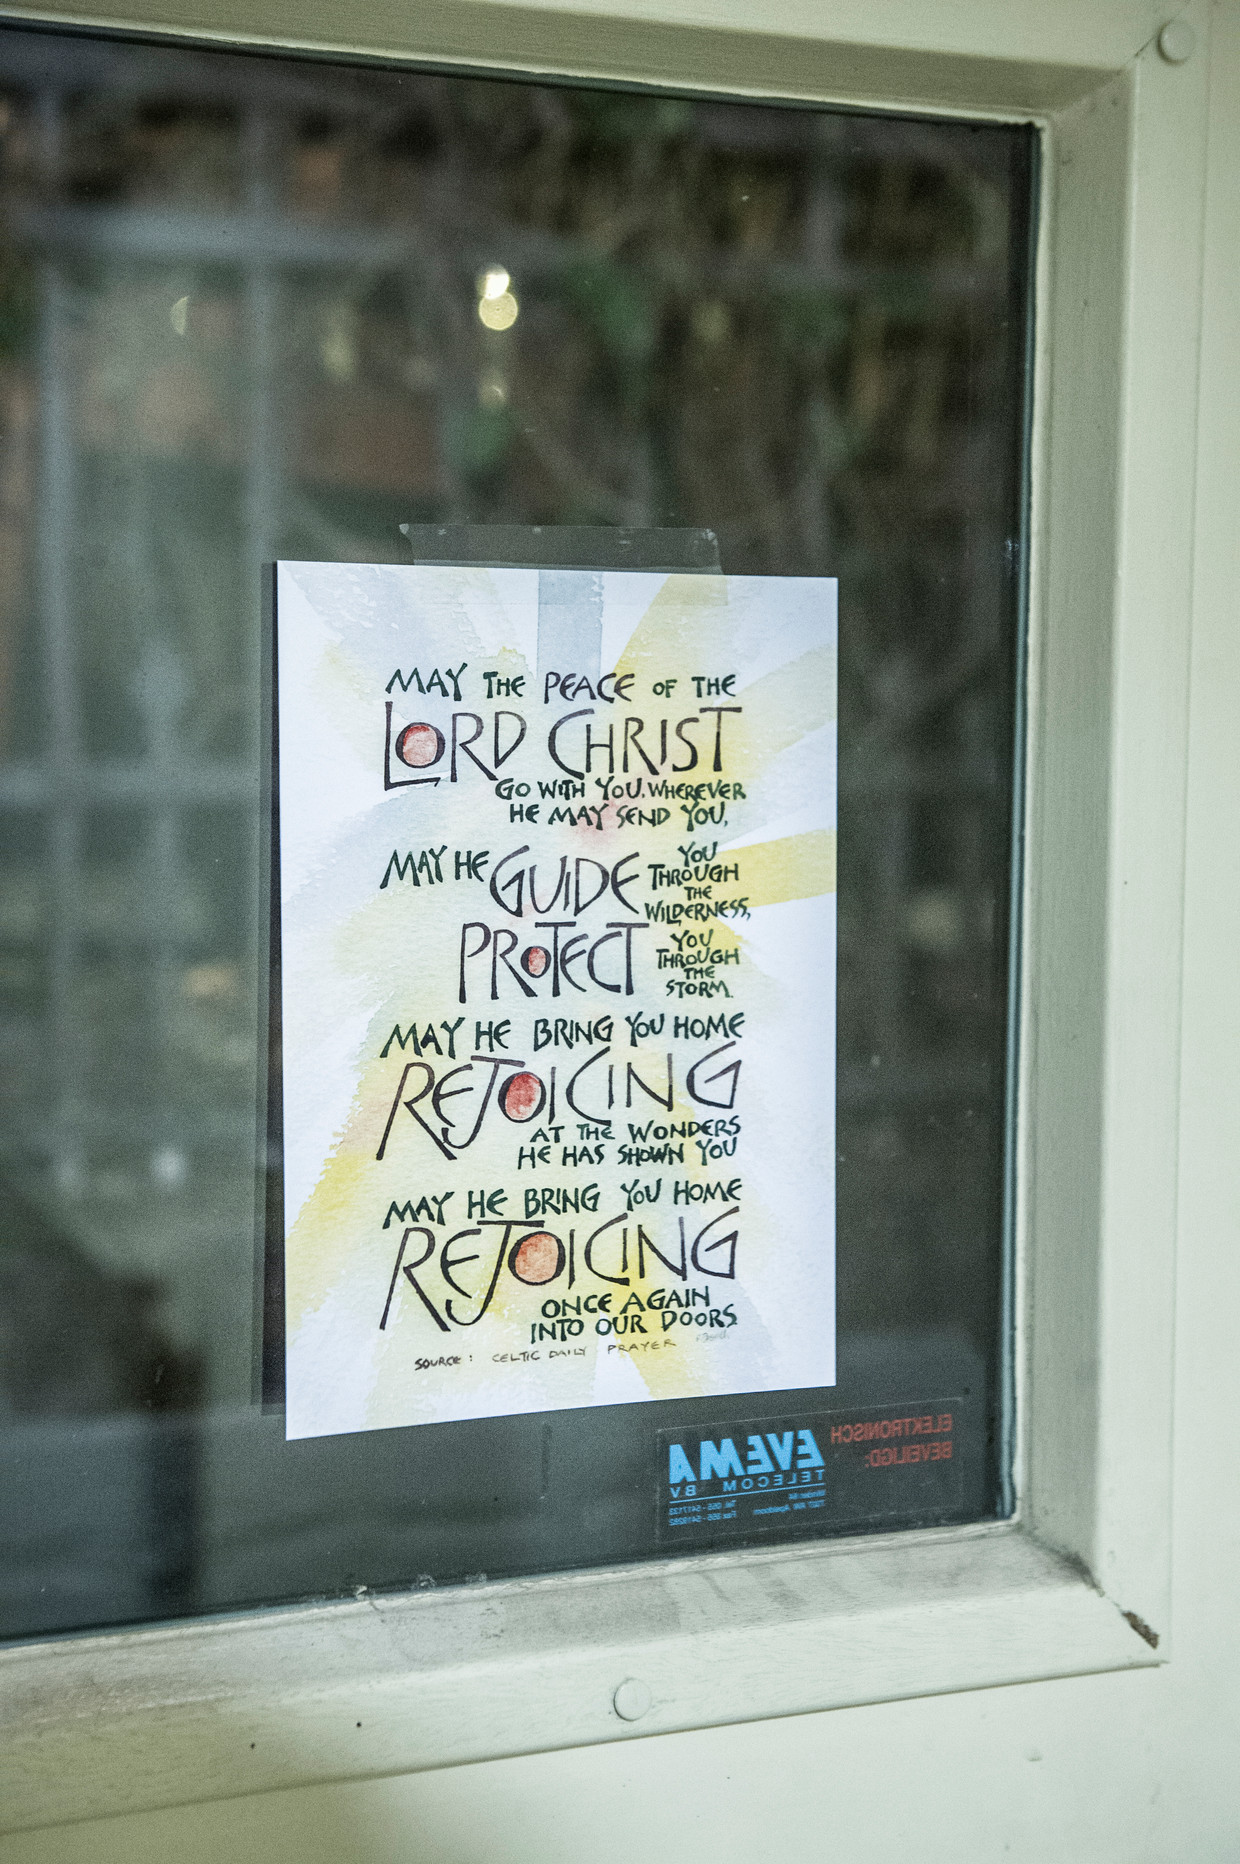 MAY THE PEACE OF THE
LORD CHRIST
GO WITH YOU, WHEREVER
HE MAY SEND YOU,
MAY HE GUIDE YOU
THROUGH
THE
WILDERNESS,
PROTECT YOU
THROUGH
THE
STORM.
MAY HE BRING YOU HOME
REJOICING
AT THE WONDERS
HE HAS SHOWN YOU
MAY HE BRING YOU HOME
REJOICING
ONCE AGAIN
INTO OUR DOORS.
SOURCE: CELTIC DAILY PRAYER
ELEKTRONISCH
BEVEILIGD:
EVEMA
TELECOM BV